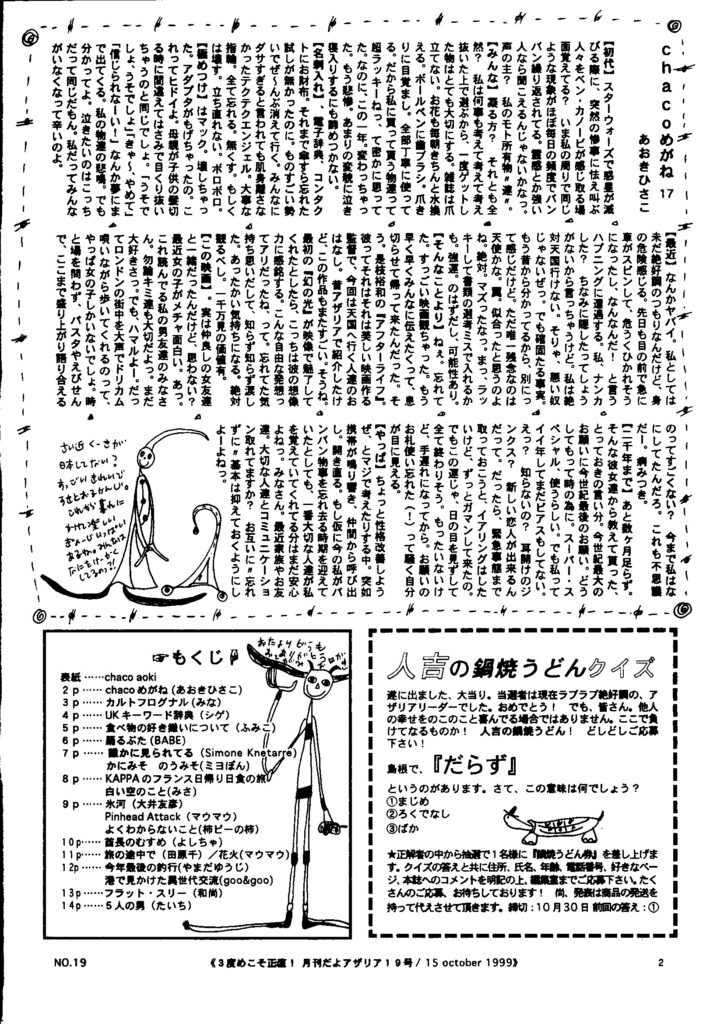 chacoめがね 17
あおきひさこ
【初代】スターウォーズで惑星が滅
びる際に、突然の惨事に怯え叫ぶ
人々をベン・カノービが感じる場
面覚えてる？ いま私の周りで同じ
現象がほぼ毎日の頻度でバン
バン繰り返されてる。霊感とか強い
人なら聞こえるんじゃないかなっ。
声の主？ 私のモト所有物〝達〟。
【みんな】凝る方？ それとも全
然？ 私は何事も考えて考えて考え
抜いた上で選ぶから、一度ゲットし
た物はとても大切にする。雑誌は爪
立てない。お花も毎朝きちんと水換
える。ボールペンに歯ブラシ。爪き
りに目覚まし。全部丁寧に使って
る。だから私に買って貰う物達って
超ラッキーねって、て密かに思って
た。なのに、この一年。変わっちゃっ
た。もう悲惨。あまりの変貌に泣き
寝入りするにも諦めつかない。
【名刺入れ】、電子辞典、コンタク
トにお財布。それまで傘すら忘れた
試しが無かったのに。ものすごい勢
いでぜ〜んぶ消えて行く。みんなに
ダサすぎると言われても肌身離さな
かったテクテクエンジェル。大事な
指輪。全て忘れる。無くす。もしく
は壊す。立ち直れない。ボロボロ。
【極めつけ】はマック。壊しちゃっ
た。アダプタがもげちゃったの。こ
れってヒドイよ。母親が子供の髪切
る時に間違えてはさみで目くり抜い
ちゃうのと同じでしょ。「うそで
しょ、うそでしょ」「きゃ〜、やめて」
「信じられな〜い！」なんか夢にま
で出てくる。私の物達の悲鳴。でも
分かってよ。泣きたいのはこっち
だって同じだもん。私だってみんな
がいなくなって辛いのよ。
【最近】なんかヤバイ。私としては
未だ絶好調のつもりなんだけど、身
の危険感じる。先日も目の前で急に
車がスピンして、危うくひかれそう
になったし。なんなんだ！ と言う
ハプニングに遭遇する。私、ナンカ
した？ ちなみに隠したってしょう
がないから言っちゃうけど。私は絶
対天国行けない。そりゃ、悪い奴
じゃないぜっ。でも確固たる事実。
もう昔から分かってるから、別にっ
て感じだけど。ただ唯一残念なのは
天使かな。翼。似合ったと思うのよ
ね、絶対。マズったなっ。まっ、ラッ
キーして書類の選考ミスで入れるか
も。強運。のはずだし。可能性あり。
【そんなことより】ねぇ。忘れて
た。すっごい映画観ちゃった。もう
早く早くみんなに伝えたくって、息
切らせて帰って来たんだった。そ
う。是枝裕和の『アフターライフ』。
彼ってそれはそれは美しい映画作る
監督で、今回は天国へ行く人達のお
はなし。昔アザリアで紹介したけ
ど、この作品もまたすごい。そうね。
最初の『幻の光』が映像で魅了して
くれたとしたら、こっちは彼の想像
力に感銘する。こんな自由な発想っ
てアリだったね、って。忘れてた気
持ち思いだして、知らず知らず涙し
た。あったかい気持ちになる。絶対
観るべし。一千万見の価値有。
【この映画】。実は仲良しの女友達
と一緒だったんだけど、思わない？
最近女の子がメチャ面白い。あっ。
これ読んでる私の男友達のみなさ
ん。勿論キミ達も大切だよっ。まだ
大好きさっ。でも、ハマルよー！。だっ
てロンドンの街中を大声でドリカム
唄いながら歩いてくれるのって、
やっぱ女の子しかいないでしょ。時
と場を問わず、パスタやえびせん
で、ここまで盛り上がり語り合える
のってすごくない？ 今まで私はな
にしてたんだろ。これも不思議
だー。病みつき。
【二千年まで】あと数ヶ月足らず。
そんな彼女達から教えて貰った、
とっておきの言い分。今世紀最大の
お願いに今世紀最後のお願い。どう
してもって時の為に。スーパー・ス
ペシャル、使うらしい。でも私って
イイ年してまだピアスもしてない。
えっ？ 知らないの？ 耳開けのジ
ンクス？ 新しい恋人が出来るん
だって。だったら、緊急事態まで
取っておこうと、イアリングはした
いけど、ずっとガマンして来たの。
でもこの運じゃ、日の目を見ずして
全て終わりそう。もったいないけ
ど、手遅れになってから、お願いの
お札使い忘れた（！）って騒ぐ自分
が目に見える。
【やっぱ】ちょっと性格改善しよう
ぜ、とマジで考えたりする中。突如
携帯が鳴り響き、仲間から呼び出
し。開き直る。もし仮に今の私がバ
ンバン物事を忘れ去る時期を迎えて
いたとしても、一番大切な人達が私
を覚えていてくれてる分はまだ安心
よねっ。みなさん。最近家族やお友
達。大切な人達とコミュニケーショ
ン取れてますか？ お互いに〝忘れ
ずに〟基本は抑えておくようにし
よーよねっ。
おたよりどうも
ありがとう
☞もくじ
表紙 ……chaco aoki
2p …… chacoめがね (あおきひさこ)
3p …… カルトフログナル(みな)
4p …… UKキーワード辞典(シゲ)
5p …… 食べ物の好き嫌いについて(ふみこ)
6p …… 踊るぶた(BABE)
7p …… 誰かに見られてる (Simone Knetarre)
かにみそ のうみそ(ミヨぽん)
8p …… KAPPAのフランス日帰り日食の旅
白い空のこと(みさ)
9p …… 氷河 (大井友彦)
Pinhead Attack (マウマウ)
よくわからないこと(柿ピーの柿)
10p…… 酋長のむすめ (よしちゃ)
11p…… 旅の途中で (田原千) ／花火(マウマウ)
12p…… 今年最後の釣行(やまだゆうじ)
港で見かけた異世代交流(goo&goo)
13p…… フラット・スリー(和尚)
14p…… 5人の男 (たいち)
人吉の鍋焼うどんクイズ
遂に出ました、大当り。当選者は現在ラブラブ絶好調の、ア
ザリアリーダーでした。おめでとう！ でも、皆さん。他人
の幸せをのこのこと喜んでる場合ではありません。ここで負
けてなるものか！ 人吉の鍋焼うどん！ どしどしご応募
下さい！
島根で、『だらず』
というのがあります。さて、この意味は何でしょう？
①まじめ
②ろくでなし
③ばか
★正解者の中から抽選で1名様に『鍋焼うどん券』を差し上げま
す。クイズの答えと共に住所、氏名、年齢、電話番号、好きなペー
ジ、本誌へのコメントを明記の上、編集室までご応募下さい。たく
さんのご応募、お待ちしております！ 尚、発表は商品の発送を
持って代えさせて頂きます。締切：10月30日 前回の答え：①
NO.19
《3度めこそ正直！ 月刊だよアザリア19号 / 15 october 1999》
2